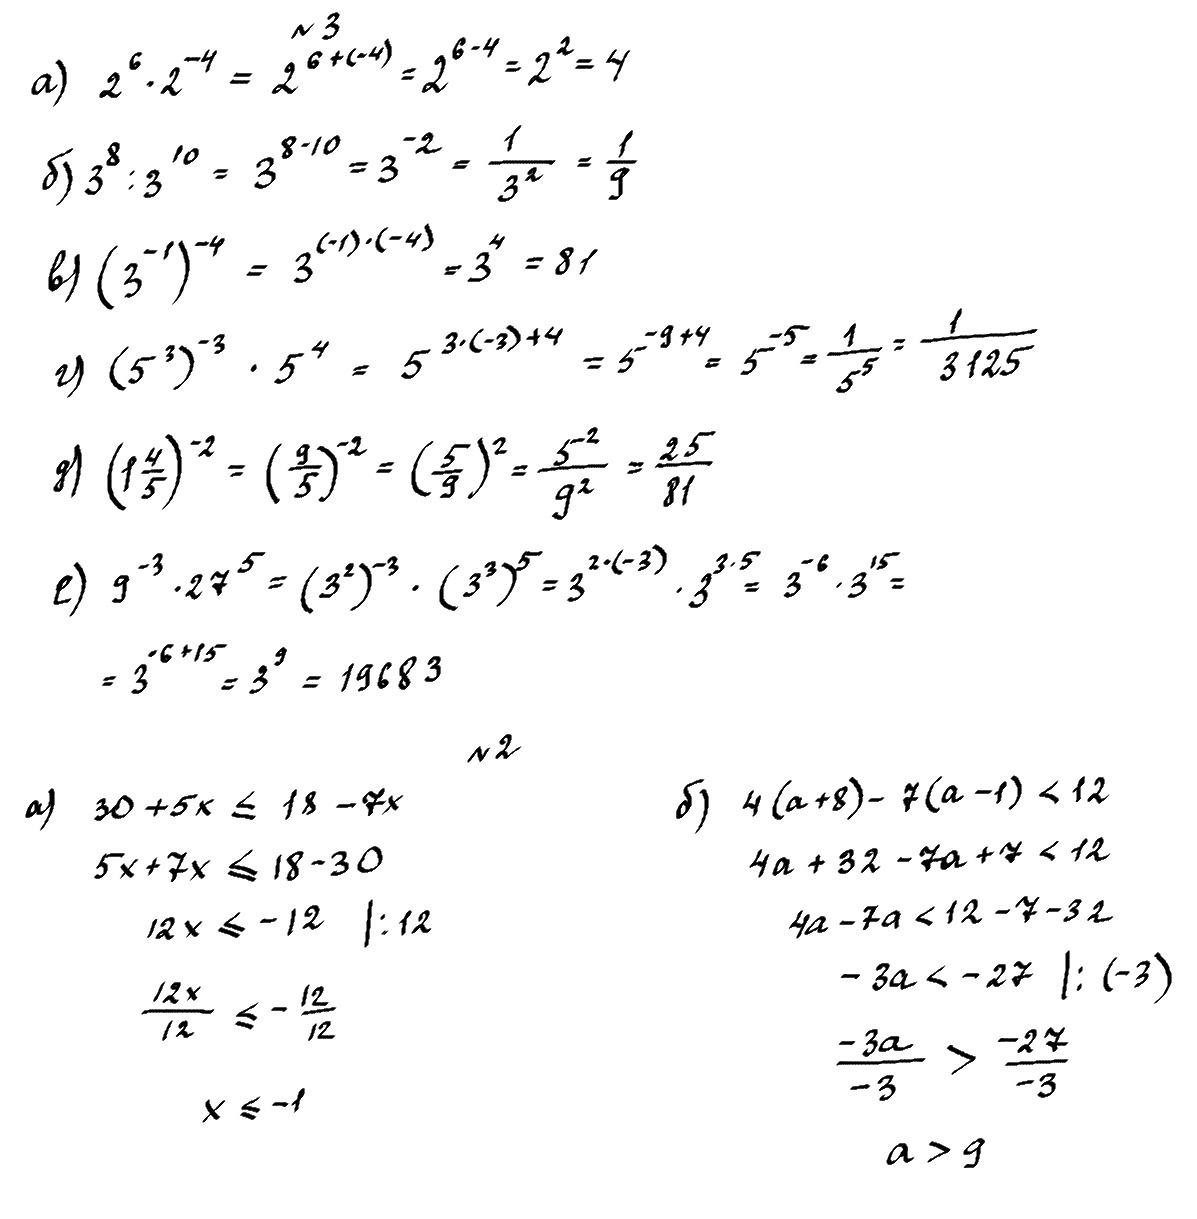 №3
а) 2^6 · 2^{-4} = 2^{6+(-4)} = 2^{6-4} = 2^2 = 4
б) 3^8 : 3^{10} = 3^{8-10} = 3^{-2} = 1/3^2 = 1/9
в) (3^{-1})^{-4} = 3^{(-1)·(-4)} = 3^4 = 81
г) (5^3)^{-3} · 5^4 = 5^{3·(-3)+4} = 5^{-9+4} = 5^{-5} = 1/5^5 = 1/3125
д) (1 4/5)^{-2} = (9/5)^{-2} = (5/9)^2 = 5^{-2}/9^2 = 25/81
е) 9^{-3} · 27^5 = (3^2)^{-3} · (3^3)^5 = 3^{2·(-3)} · 3^{3·5} = 3^{-6} · 3^{15} =
= 3^{-6+15} = 3^9 = 19683
№2
а) 30 + 5x ≤ 18 - 7x
5x + 7x ≤ 18 - 30
12x ≤ -12 |:12
12x/12 ≤ -12/12
x ≤ -1
б) 4(a+8) - 7(a-1) < 12
4a + 32 - 7a + 7 < 12
4a - 7a < 12 - 7 - 32
-3a < -27 |: (-3)
-3a/-3 > -27/-3
a > 9